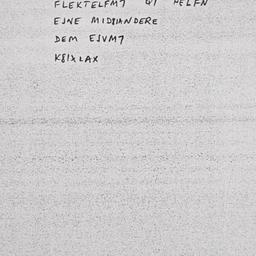 FLEKTELFM7 QI HELFN
EJNE MIDBIANDERE
DEM EJVM7
K8IXLAX